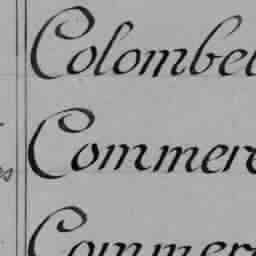 Colombel
Commerc
Commerc